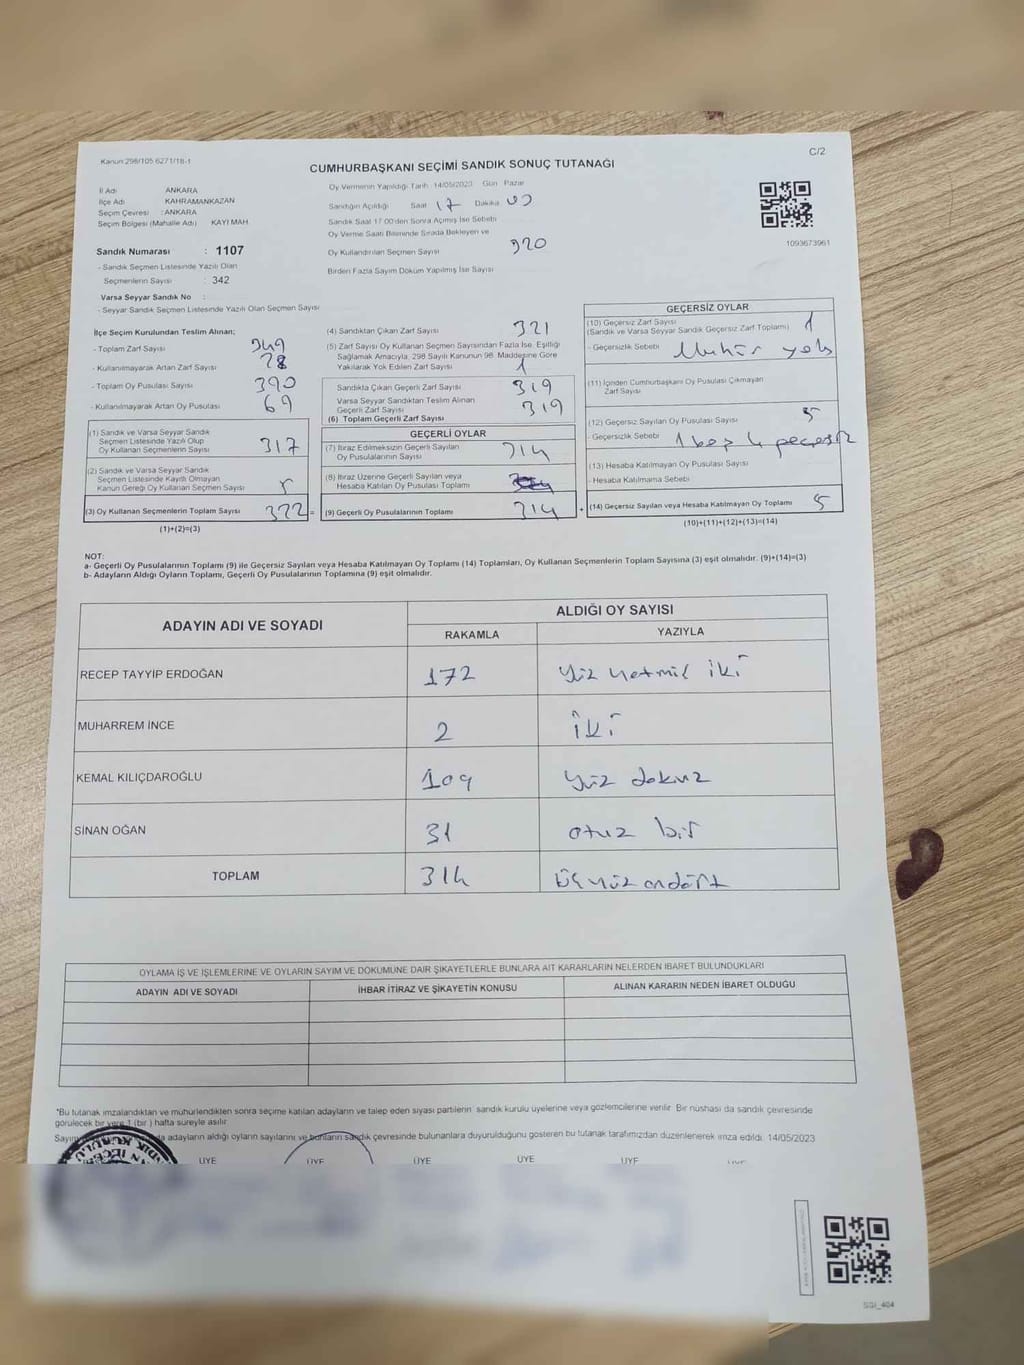 Kanun:298/105 6271/18-1
C/2
CUMHURBAŞKANI SEÇİMİ SANDIK SONUÇ TUTANAĞI
İl Adı ANKARA
İlçe Adı KAHRAMANKAZAN
Seçim Çevresi : ANKARA
Seçim Bölgesi (Mahalle Adı) KAYI MAH.
Sandık Numarası : 1107
- Sandık Seçmen Listesinde Yazılı Olan
Seçmenlerin Sayısı : 342
Varsa Seyyar Sandık No :
- Seyyar Sandık Seçmen Listesinde Yazılı Olan Seçmen Sayısı
Oy Vermenin Yapıldığı Tarih 14/05/2023 Gün Pazar
Sandığın Açıldığı Saat 17 Dakika 00
Sandık Saat 17.00'den Sonra Açılmış İse Sebebi
Oy Verme Saati Bitiminde Sırada Bekleyen ve
Oy Kullandırılan Seçmen Sayısı 320
Birden Fazla Sayım Döküm Yapılmış İse Sayısı
1093673961
İlçe Seçim Kurulundan Teslim Alınan;
- Toplam Zarf Sayısı 349
- Kullanılmayarak Artan Zarf Sayısı 28
- Toplam Oy Pusulası Sayısı 390
- Kullanılmayarak Artan Oy Pusulası 69
(1) Sandık ve Varsa Seyyar Sandık
Seçmen Listesinde Yazılı Olup
Oy Kullanan Seçmenlerin Sayısı 317
(2) Sandık ve Varsa Seyyar Sandık
Seçmen Listesinde Kayıtlı Olmayan
Kanun Gereği Oy Kullanan Seçmen Sayısı
(3) Oy Kullanan Seçmenlerin Toplam Sayısı 322 =
(1)+(2)=(3)
(4) Sandıktan Çıkan Zarf Sayısı 321
(5) Zarf Sayısı Oy Kullanan Seçmen Sayısından Fazla İse, Eşitliği
Sağlamak Amacıyla, 298 Sayılı Kanunun 98. Maddesine Göre
Yakılarak Yok Edilen Zarf Sayısı 1
Sandıkta Çıkan Geçerli Zarf Sayısı 319
Varsa Seyyar Sandıktan Teslim Alınan
Geçerli Zarf Sayısı 319
(6) Toplam Geçerli Zarf Sayısı
GEÇERLİ OYLAR
(7) İtiraz Edilmeksizin Geçerli Sayılan
Oy Pusulalarının Sayısı 314
(8) İtiraz Üzerine Geçerli Sayılan veya
Hesaba Katılan Oy Pusulası Toplamı
(9) Geçerli Oy Pusulalarının Toplamı 314 +
GEÇERSİZ OYLAR
(10) Geçersiz Zarf Sayısı
(Sandık ve Varsa Seyyar Sandık Geçersiz Zarf Toplamı) 1
- Geçersizlik Sebebi Muhür yok
(11) İçinden Cumhurbaşkanı Oy Pusulası Çıkmayan
Zarf Sayısı
(12) Geçersiz Sayılan Oy Pusulası Sayısı 5
- Geçersizlik Sebebi 1 boş 4 geçersiz
(13) Hesaba Katılmayan Oy Pusulası Sayısı
- Hesaba Katılmama Sebebi
(14) Geçersiz Sayılan veya Hesaba Katılmayan Oy Toplamı 5
(10)+(11)+(12)+(13)=(14)
NOT:
a- Geçerli Oy Pusulalarının Toplamı (9) ile Geçersiz Sayılan veya Hesaba Katılmayan Oy Toplamı (14) Toplamları, Oy Kullanan Seçmenlerin Toplam Sayısına (3) eşit olmalıdır. (9)+(14)=(3)
b- Adayların Aldığı Oyların Toplamı, Geçerli Oy Pusulalarının Toplamına (9) eşit olmalıdır.
ADAYIN ADI VE SOYADI
ALDIĞI OY SAYISI
RAKAMLA YAZIYLA
RECEP TAYYİP ERDOĞAN 172 yüz yetmiş iki
MUHARREM İNCE 2 iki
KEMAL KILIÇDAROĞLU 109 yüz dokuz
SİNAN OĞAN 31 otuz bir
TOPLAM 314 üç yüz ondört
OYLAMA İŞ VE İŞLEMLERİNE VE OYLARIN SAYIM VE DÖKÜMÜNE DAİR ŞİKAYETLERLE BUNLARA AİT KARARLARIN NELERDEN İBARET BULUNDUKLARI
ADAYIN ADI VE SOYADI İHBAR İTİRAZ VE ŞİKAYETİN KONUSU ALINAN KARARIN NEDEN İBARET OLDUĞU
*Bu tutanak imzalandıktan ve mühürlendikten sonra seçime katılan adayların ve talep eden siyasi partilerin sandık kurulu üyelerine veya gözlemcilerine verilir. Bir nüshası da sandık çevresinde
görülecek bir yere 1 (bir) hafta süreyle asılır.
adayların aldığı oyların sayılarını ve bunların sandık çevresinde bulunanlara duyurulduğunu gösteren bu tutanak tarafımızdan düzenlenerek imza edildi. 14/05/2023
ÜYE ÜYE ÜYE ÜYE ÜYE
SGİ_404